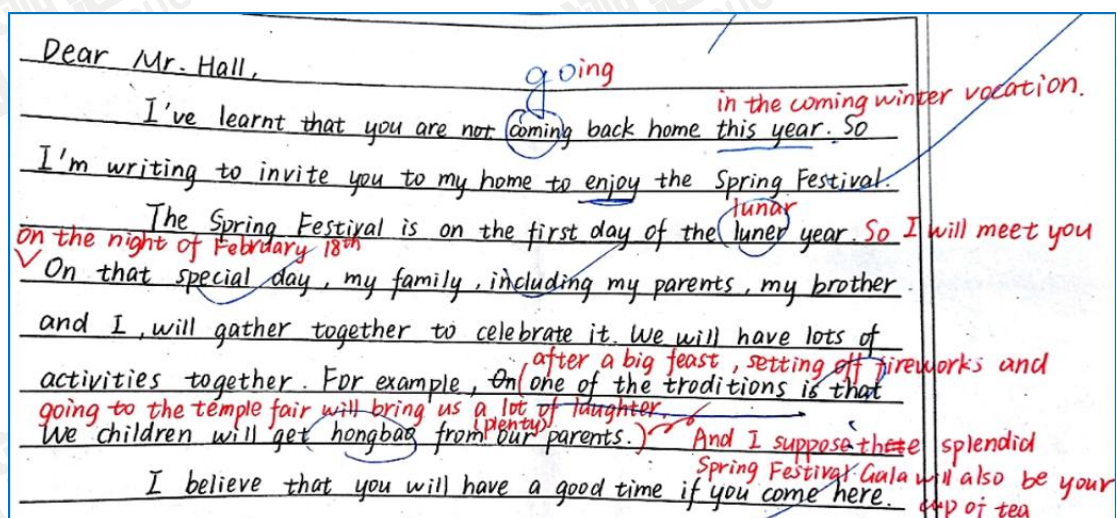 Dear Mr. Hall,
going
in the coming winter vacation.
I've learnt that you are not coming back home this year. So
I'm writing to invite you to my home to enjoy the Spring Festival.
lunar
The Spring Festival is on the first day of the luner year. So I will meet you
on the night of February 18th
On that special day, my family, including my parents, my brother
and I, will gather together to celebrate it. We will have lots of
after a big feast, setting off fireworks and
activities together. For example, On (one of the traditions is that
going to the temple fair will bring us a lot of laughter.
(plenty)
We children will get hongbao from our parents.) And I suppose the splendid
Spring Festival Gala will also be your
I believe that you will have a good time if you come here.
cup of tea